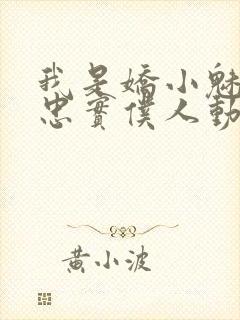 我是嬌小魅
忠實僕人動
黃小波